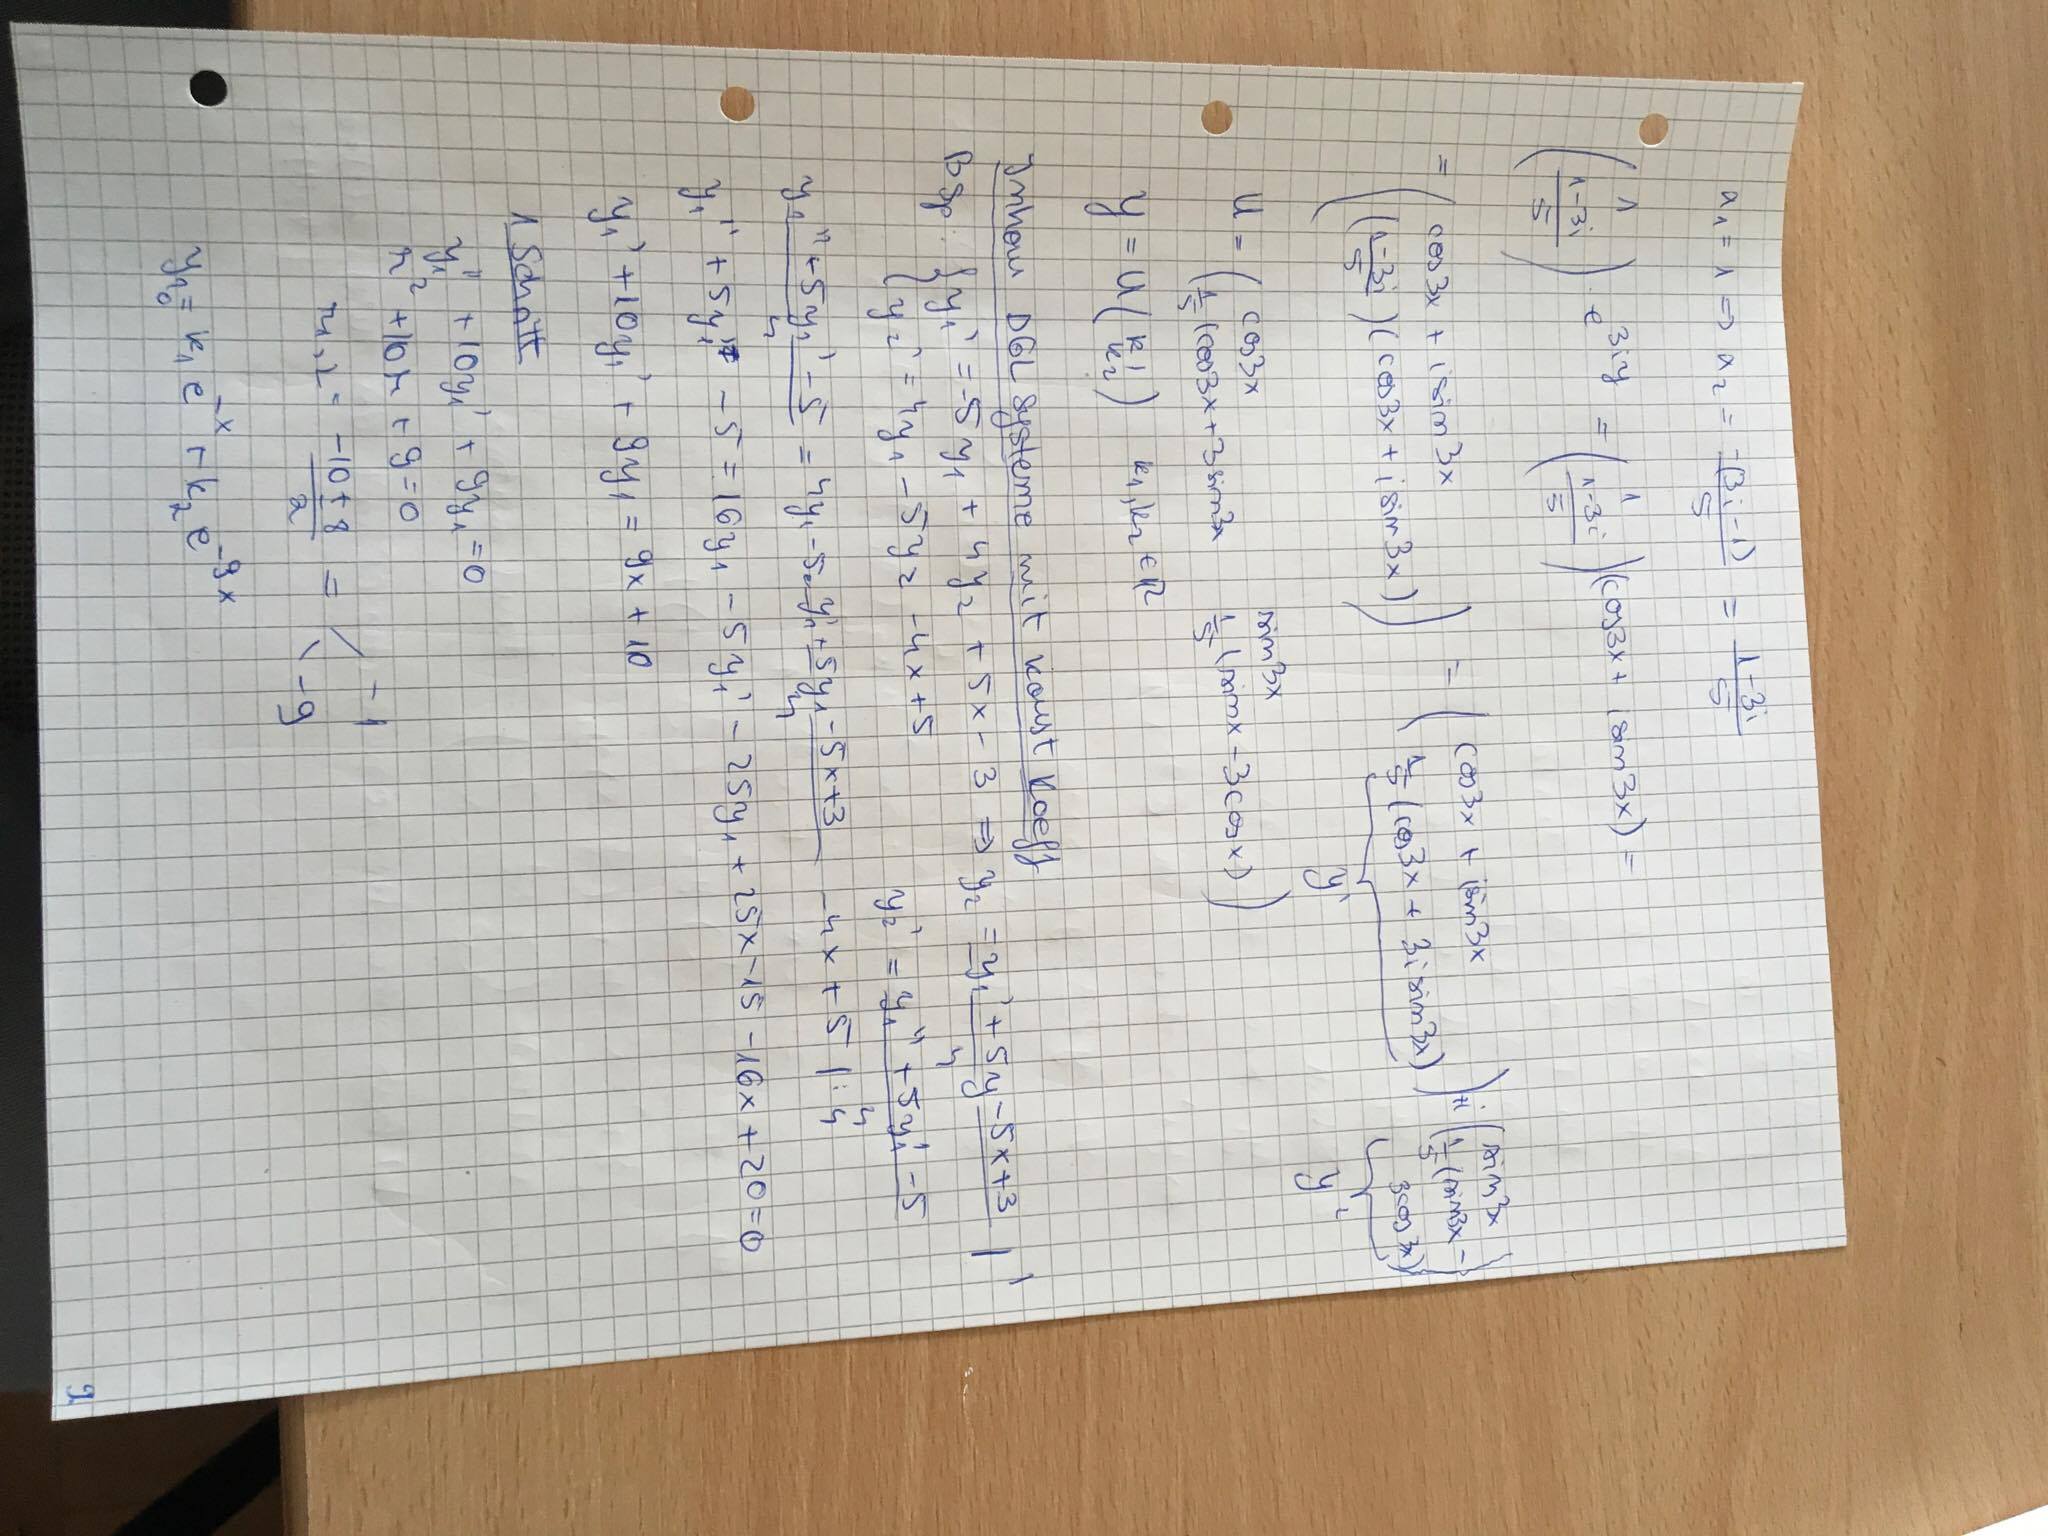 α₁ = 1 => α₂ = -(3i-1)/5 = (1-3i)/5
(1 (1-3i)/5) · e^3iy = (1 (1-3i)/5)(cos3x + isin3x) =
= (cos3x + isin3x ((1-3i)/5)(cos3x + isin3x)) = (cos3x + isin3x 1/5(cos3x + 3isin3x)) + i(sin3x 1/5(sin3x - 3cos3x))
y₁ y₂
U = (cos3x sin3x
1/5(cos3x+3sin3x 1/5(sinx-3cosx))
y = U(k₁ k₂) k₁,k₂ ∈ ℝ
Inhom DGL Systeme mit konst Koeff
Bsp. { y₁' = -5y₁ + 4y₂ + 5x - 3 => y₂ = (y₁' + 5y - 5x + 3)/4 | '
{ y₂' = 4y₁ - 5y₂ - 4x + 5 y₂' = (y₁'' + 5y₁' - 5)/4
(y₁'' + 5y₁' - 5)/4 = 4y₁ - 5 (y₁' + 5y₁ - 5x + 3)/4 - 4x + 5 |·4
y₁'' + 5y₁' - 5 = 16y₁ - 5y₁' - 25y₁ + 25x - 15 - 16x + 20 = 0
y₁'' + 10y₁' + 9y₁ = 9x + 10
1 Schritt
y₁'' + 10y₁' + 9y₁ = 0
r² + 10r + 9 = 0
r₁,₂ = (-10 ± 8)/2 = / -1 \ -9
y₁₀ = k₁e^-x + k₂e^-9x
2